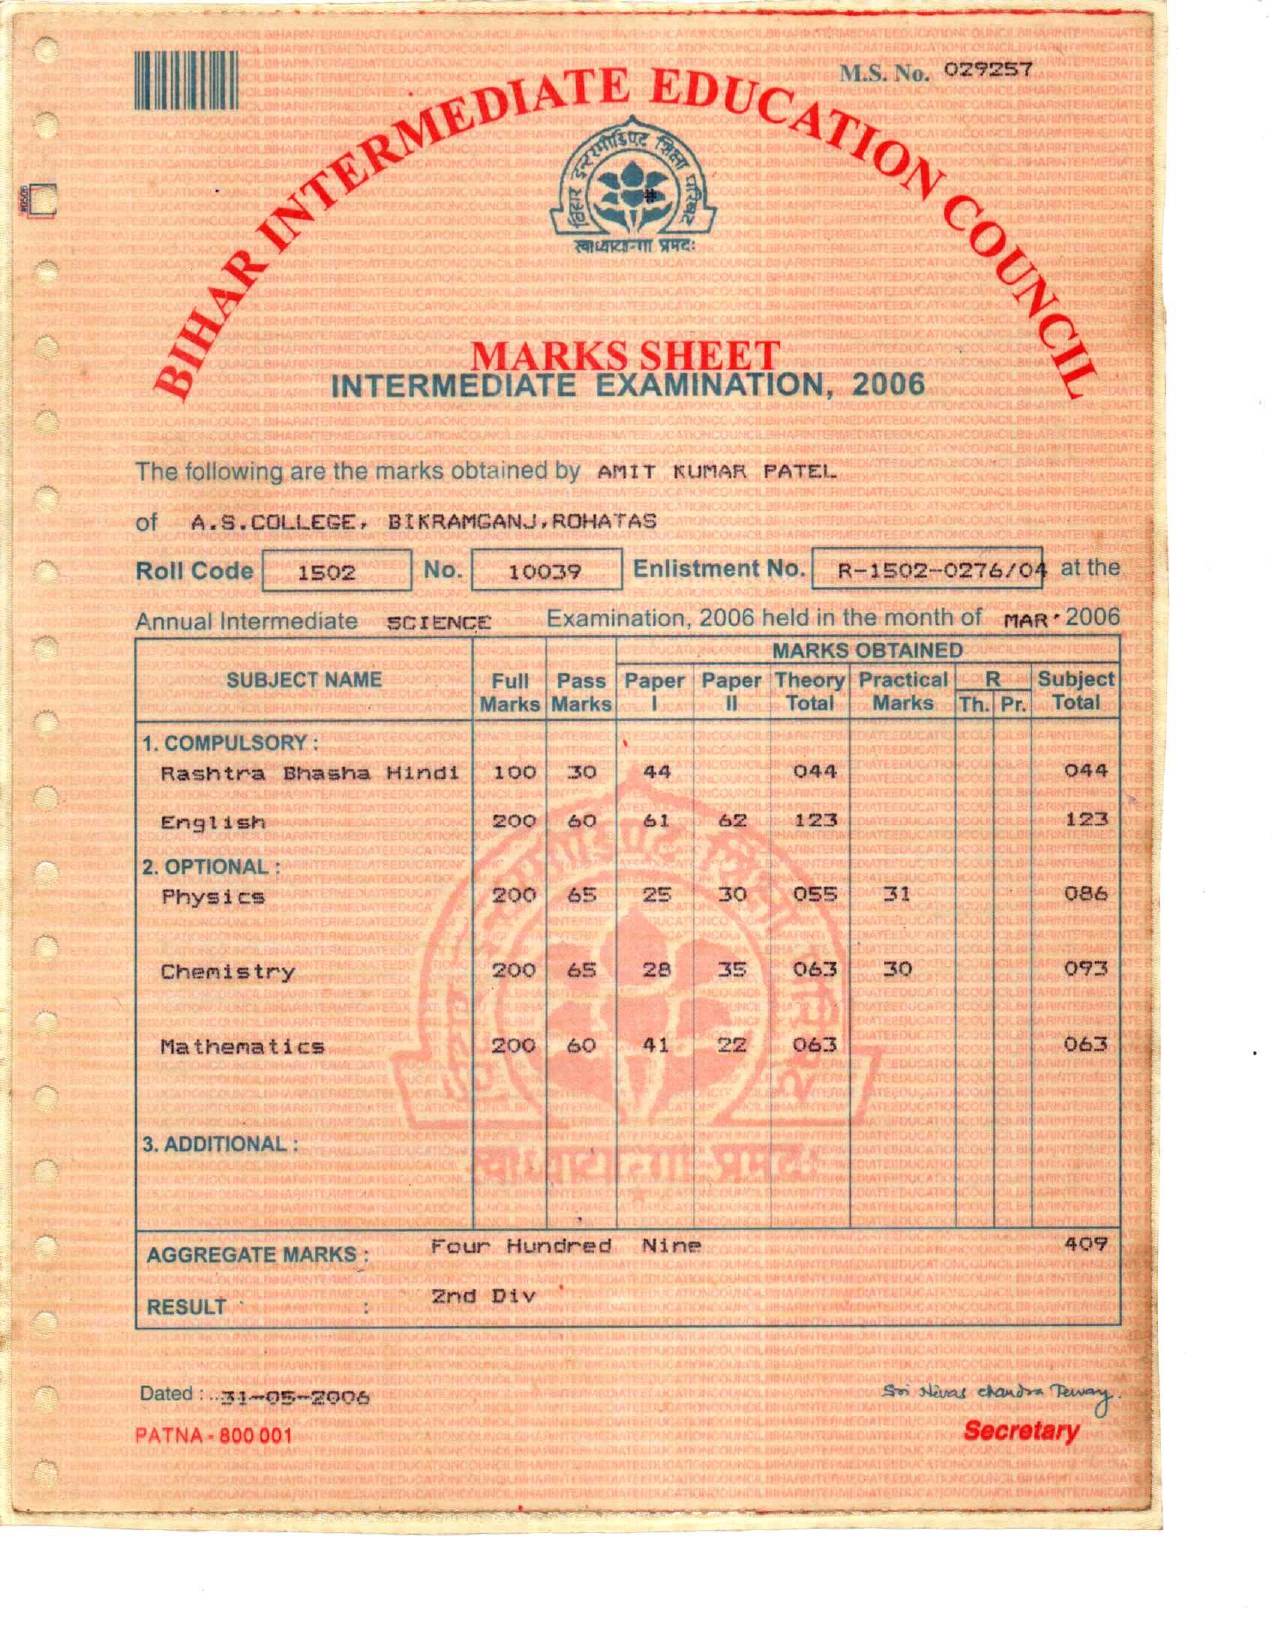 M.S. No. 029257
BIHAR INTERMEDIATE EDUCATION COUNCIL
बिहार इन्टरमीडिएट शिक्षा परिषद
#
MARKS SHEET
INTERMEDIATE EXAMINATION, 2006
The following are the marks obtained by AMIT KUMAR PATEL
of A.S.COLLEGE, BIKRAMGANJ,ROHATAS
Roll Code 1502 No. 10039 Enlistment No. R-1502-0276/04 at the
Annual Intermediate SCIENCE Examination, 2006 held in the month of MAR' 2006
MARKS OBTAINED
SUBJECT NAME Full Marks Pass Marks Paper I Paper II Theory Total Practical Marks R Th. Pr. Subject Total
1. COMPULSORY :
Rashtra Bhasha Hindi 100 30 44 044 044
English 200 60 61 62 123 123
2. OPTIONAL :
Physics 200 65 25 30 055 31 086
Chemistry 200 65 28 35 063 30 093
Mathematics 200 60 41 22 063 063
3. ADDITIONAL :
AGGREGATE MARKS : Four Hundred Nine 409
RESULT : 2nd Div
Dated : ..31-05-2006
Sri Nivas Chandra Tewary.
PATNA - 800 001
Secretary